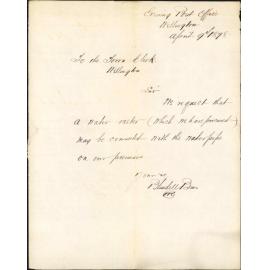 Evening Post Office
Wellington
April 9th 1878
To the Town Clerk
Wellington
Sir
We request that
a water meter (which we have procured)
may be connected with the water pipe
on our premises
Yours &c
Blundell Bros